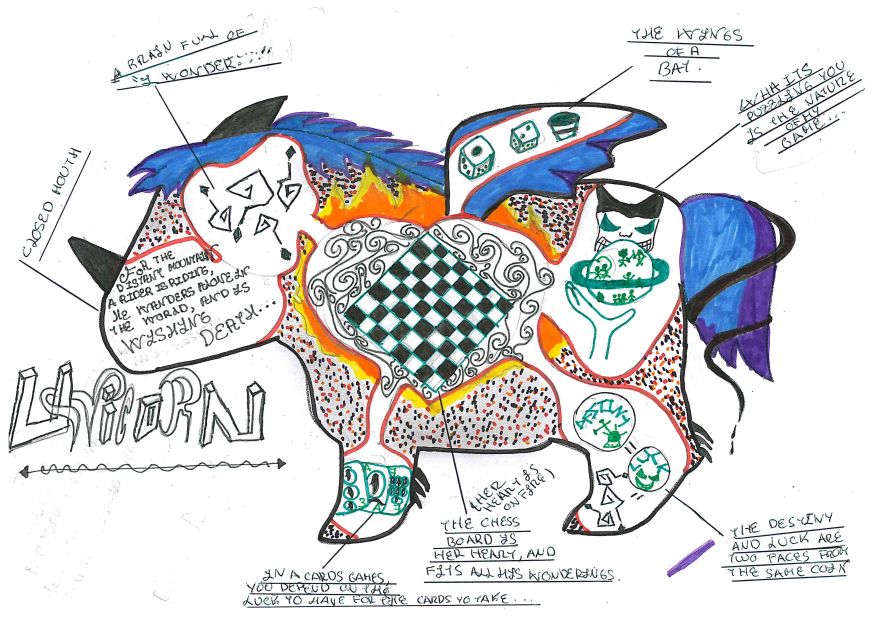 A BRAIN FULL OF
"I WONDER....."
THE WINGS
OF A
BAT.
WHAT IS
PUZZLING YOU
IS THE NATURE
OF MY
GAME...
CLOSED MOUTH
(FOR THE
DISTANT MOUNTAINS
A RIDER IS RIDING,
HE WANDERS ALONE IN
THE WORLD, AND IS
WISHING
DEATH...
UNICORN
DESTINY
LUCK
(HER
HEART IS
ON FIRE)
THE CHESS
BOARD IS
HER HEART, AND
FITS ALL HIS WONDERINGS.
IN A CARDS GAMES,
YOU DEPEND ON THE
LUCK TO HAVE FOR THE CARDS TO TAKE...
THE DESTINY
AND LUCK ARE
TWO FACES FROM
THE SAME COIN